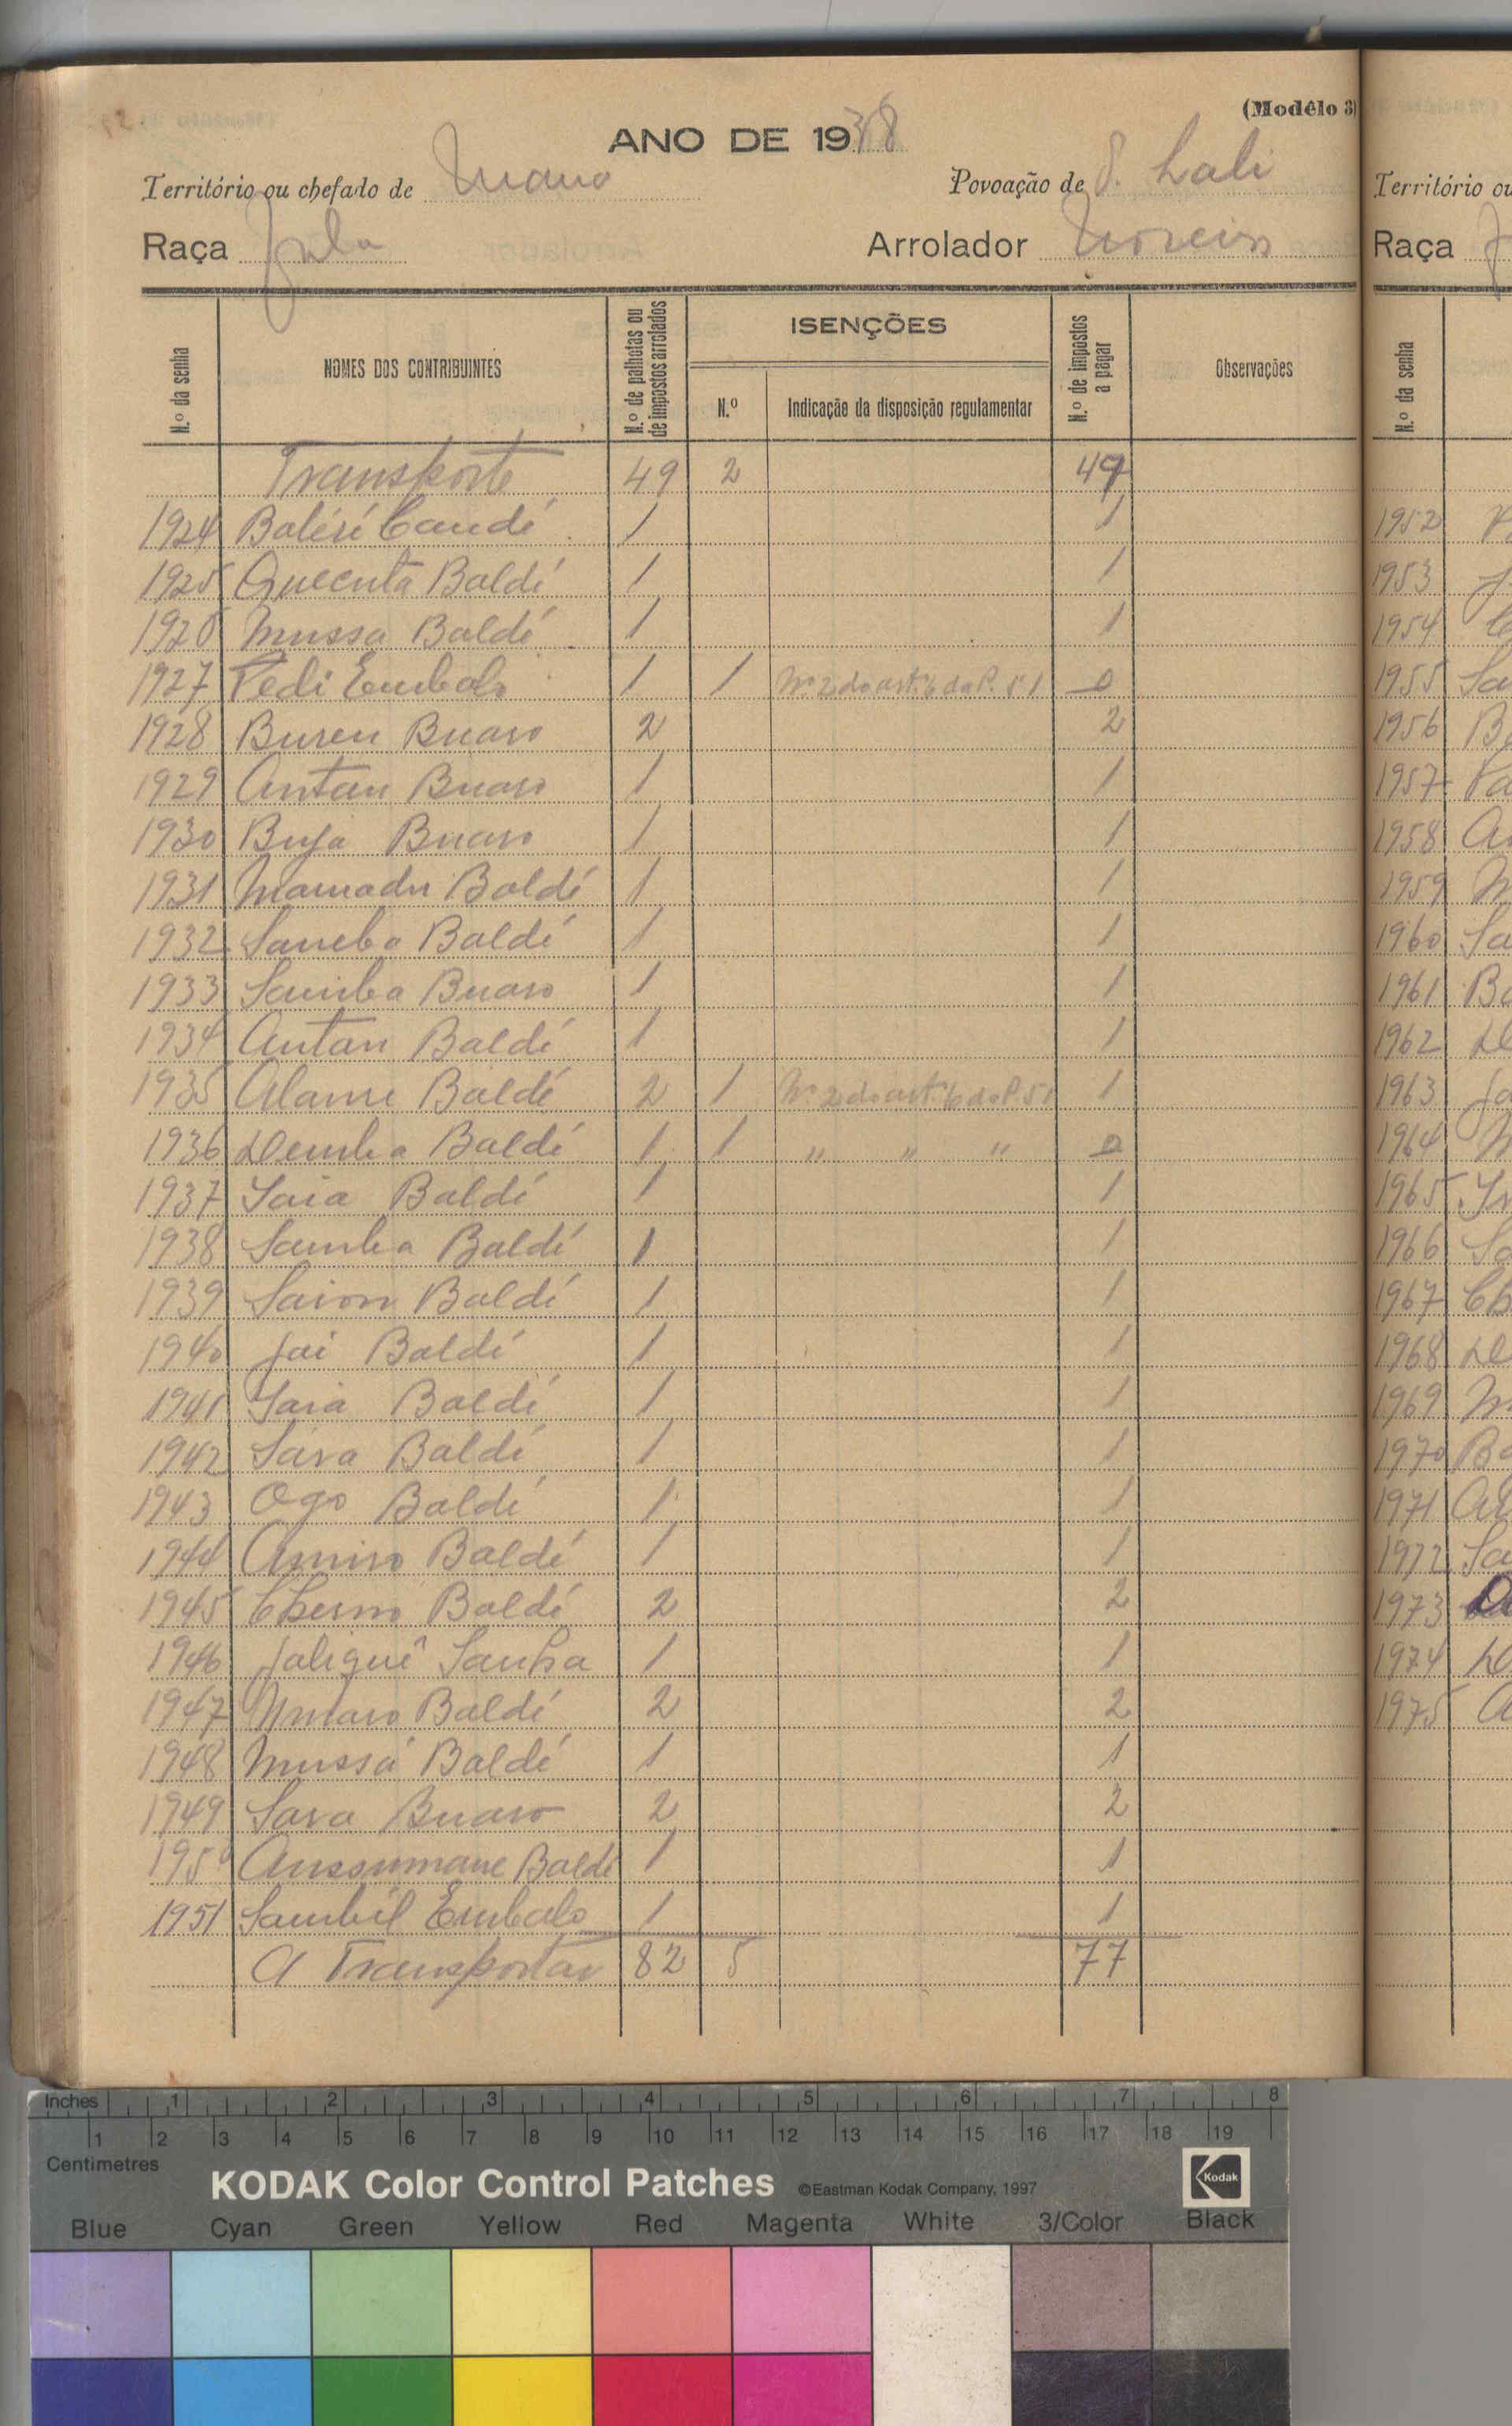 (Modêlo 3)
ANO DE 1938
Território ou chefado de
Povoação de S. Lali
Raça Fula
Arrolador Moreira
N.º da senha
NOMES DOS CONTRIBUINTES
N.º de palhotas ou de impostos arrolados
ISENÇÕES
N.º
Indicação da disposição regulamentar
N.º de impostos a pagar
Observações
Transporte 49 2 47
1924 Baléré Candé 1 1
1925 Quecuta Baldé 1 1
1926 Mussa Baldé 1 1
1927 Pedi Embalo 1 1 Nº 2 do art. 6 do P. 51 0
1928 Buren Buaro 2 2
1929 Antan Buaro 1 1
1930 Buja Buaro 1 1
1931 Mamadu Baldé 1 1
1932 Samba Baldé 1 1
1933 Samba Buaro 1 1
1934 Antan Baldé 1 1
1935 Alame Baldé 2 1 Nº 2 do art. 6 do P. 51 1
1936 Demba Baldé 1 1 " " " 0
1937 Saia Baldé 1 1
1938 Samba Baldé 1 1
1939 Saion Baldé 1 1
1940 Jai Baldé 1 1
1941 Saia Baldé 1 1
1942 Sára Baldé 1 1
1943 Ogo Baldé 1 1
1944 Amiro Baldé 1 1
1945 Cherno Baldé 2 2
1946 Jaliquê Sanha 1 1
1947 Umaro Baldé 2 2
1948 Mussá Baldé 1 1
1949 Sara Buaro 2 2
1950 Aussumane Baldé 1 1
1951 Sambél Embalo 1 1
A Transportar 82 5 77
Território ou
Raça
N.º da senha
1952
1953
1954
1955 Sa
1956 B
1957
1958
1959 M
1960 Sa
1961 Ba
1962 De
1963 Ja
1964 M
1965
1966 Sa
1967 Ch
1968 De
1969 M
1970 Ba
1971
1972 Sa
1973
1974
1975
Inches 1 2 3 4 5 6 7 8
1 2 3 4 5 6 7 8 9 10 11 12 13 14 15 16 17 18 19
Centimetres
KODAK Color Control Patches ©Eastman Kodak Company, 1997 Kodak
Blue Cyan Green Yellow Red Magenta White 3/Color Black